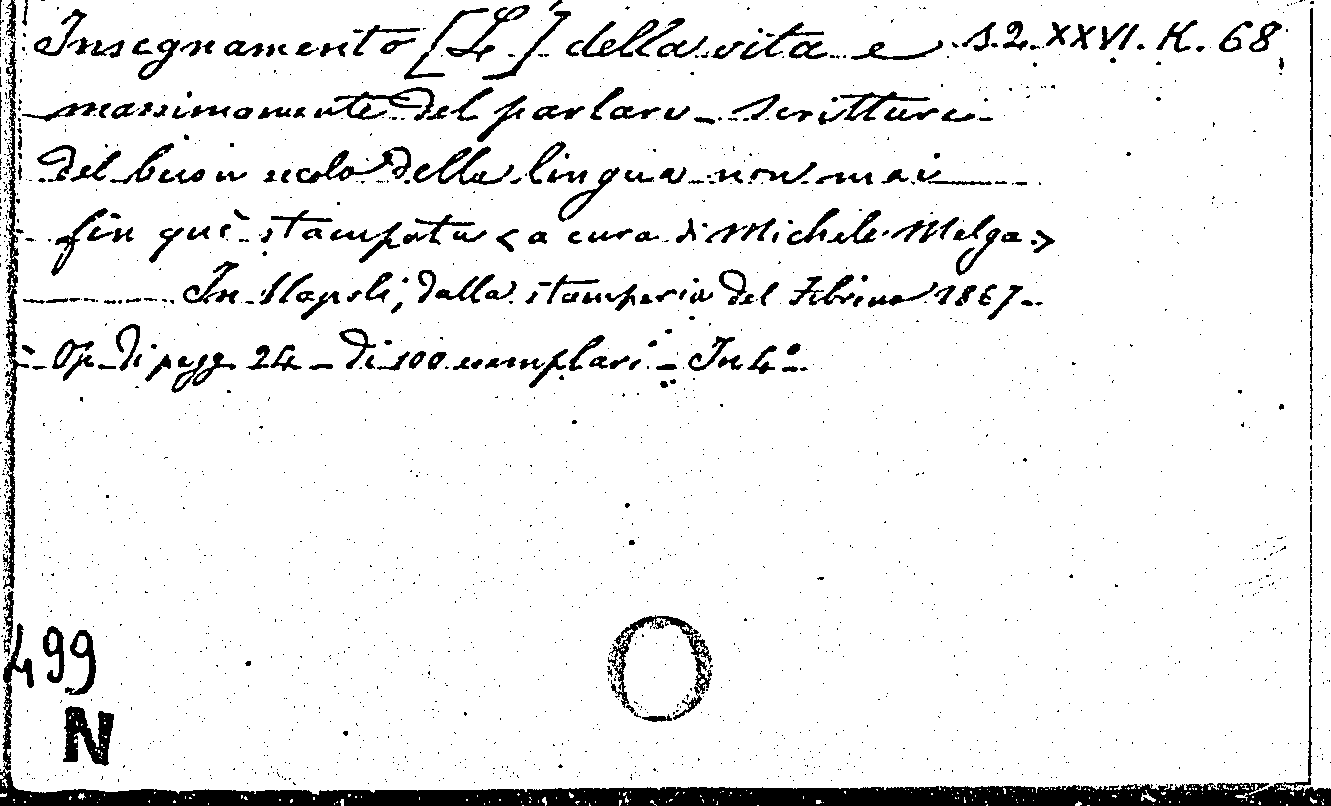 Insegnamento [L'] della vita e S.Q. XXVI. K. 68
massimamente del parlare – Scritture
del buon secolo della lingua non mai
fin quì stampata < a cura di Michele Melga >
In Napoli, dalla stamperia del Fibreno 1867 –
– Op. di pagg. 24 – di 100 esemplari – In 4°
499
N